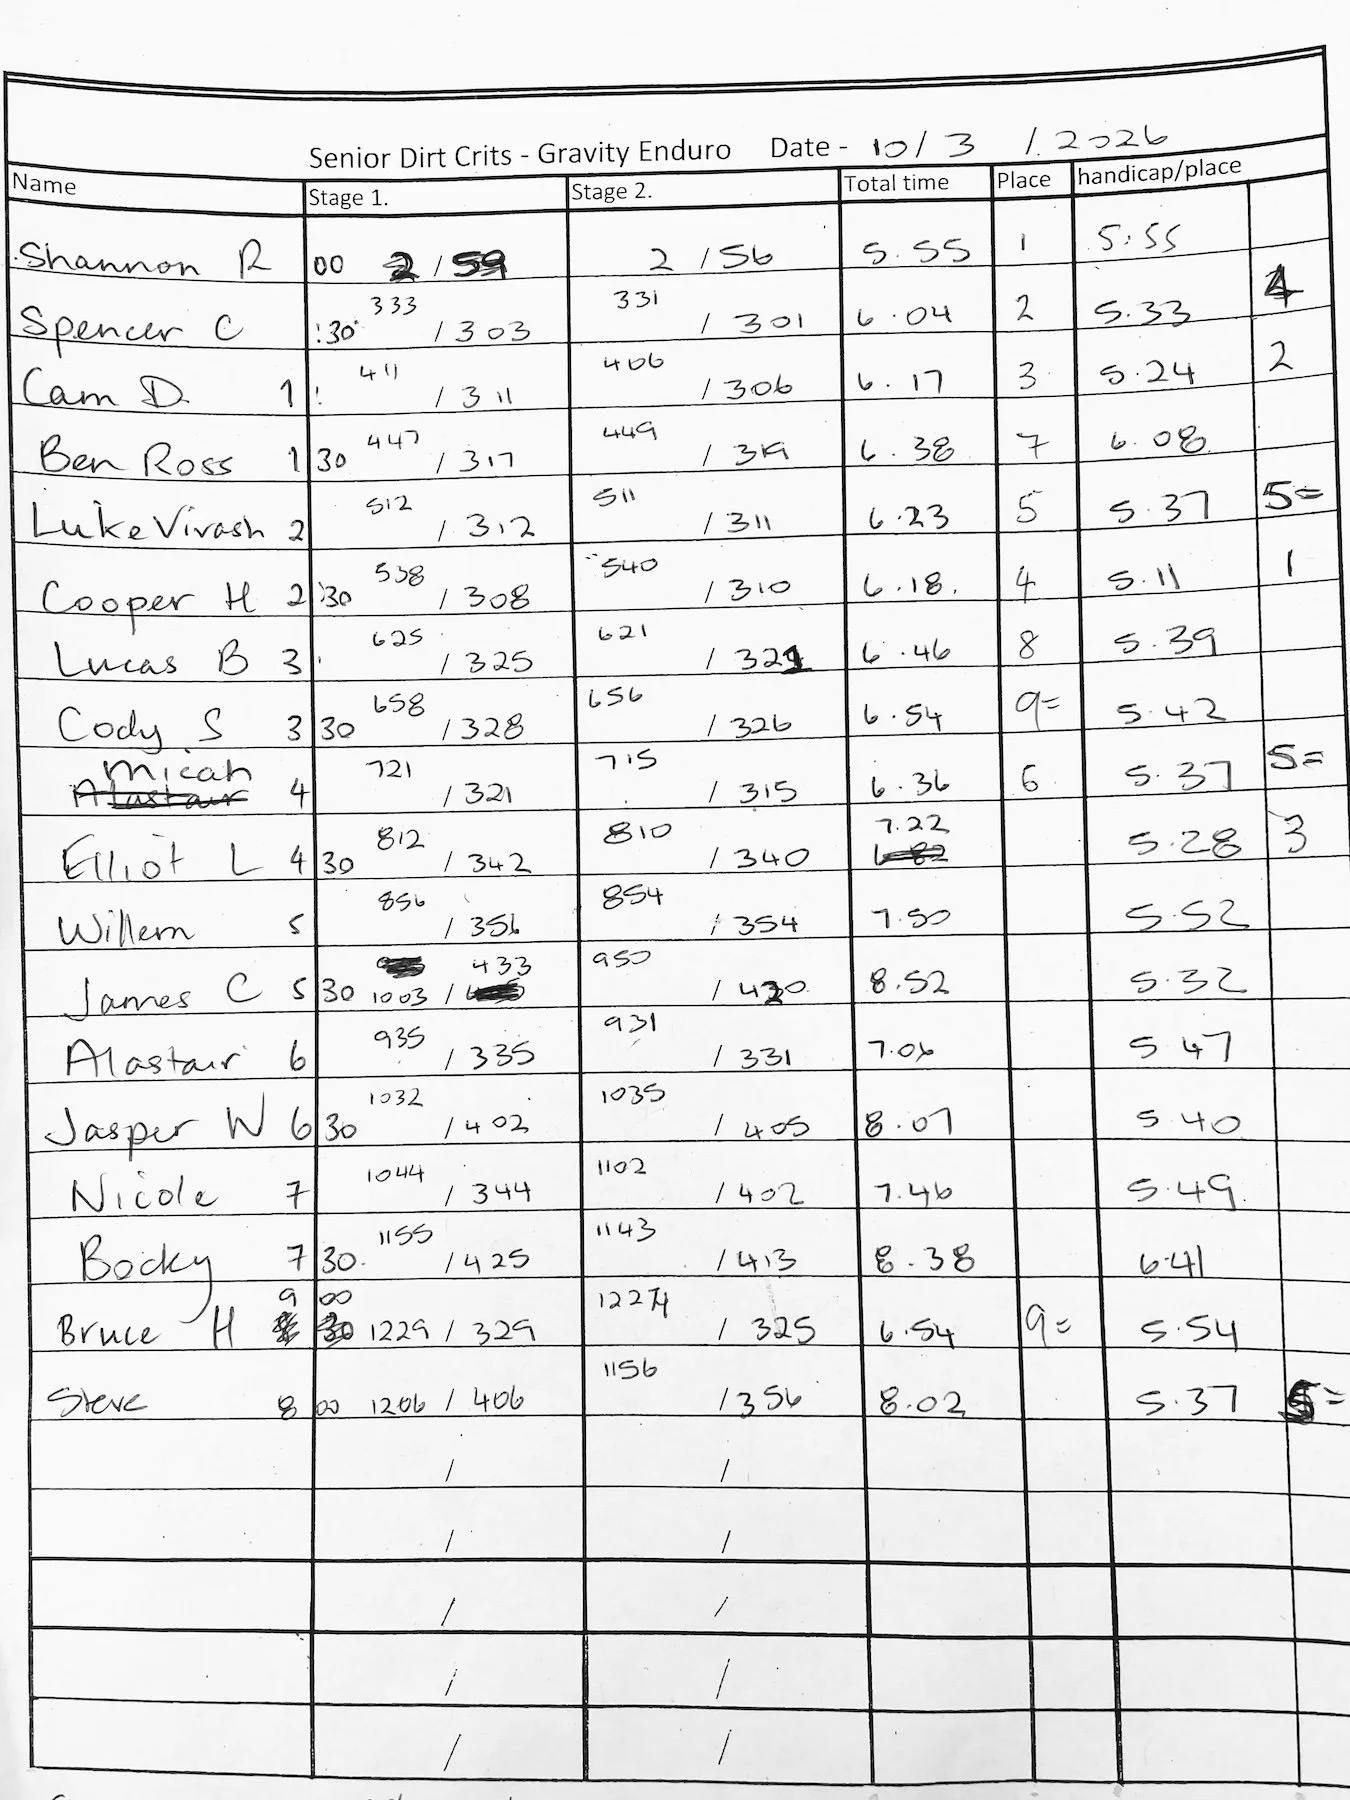 Senior Dirt Crits - Gravity Enduro Date - 10/3/2026
Name Stage 1. Stage 2. Total time Place handicap/place
Shannon R 00 2/59 2/56 5.55 1 5:55
Spencer C :30 333 /303 331 /301 6.04 2 5.33 4
Cam D. 1 : 411 /311 406 /306 6.17 3 5.24 2
Ben Ross 1 30 447 /317 449 /319 6.38 7 6.08
Luke Virash 2 512 /312 511 /311 6.23 5 5.37 5=
Cooper H 2 :30 538 /308 540 /310 6.18. 4 5.11 1
Lucas B 3 625 /325 621 /321 6.46 8 5.39
Cody S 3 30 658 /328 656 /326 6.54 9= 5.42
Micah 4 721 /321 715 /315 6.36 6 5.37 5=
Elliot L 4 30 812 /342 810 /340 7.22 5.28 3
Willem 5 856 /356 854 /354 7.50 5.52
James C 5 30 1003 /433 950 /420 8.52 5.32
Alastair 6 935 /335 931 /331 7.06 5.47
Jasper W 6 30 1032 /402 1035 /405 8.07 5.40
Nicole 7 1044 /344 1102 /402 7.46 5.49
Bocky 7 30 1155 /425 1143 /413 8.38 6.41
Bruce H 9 00 1229 / 329 1224 / 325 6.54 9= 5.54
Steve 8 00 1206 / 406 1156 /356 8.02 5.37 5=
/ /
/ /
/ /
/ /
/ /